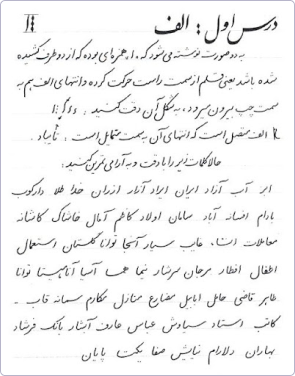 درس اول : الف
به دو صورت نوشته می‌شود که ۱. همزه‌ای بوده که از دو طرف کشیده
شده باشد یعنی قلم از سمت راست حرکت کرده و انتهای الف هم به
سمت چپ بیرون میرود، به شکل آن دقت کنید :
۲ الف متصل است که انتهای آن به سمت متمایل است :
حالا کلمات زیر را با دقت و به آرامی تمرین کنید :
ابر آب آزاد ایران ایراد آثار ارزان خدا طلا دارکوب
بادام افسانه آباد سامان اولاد کاظم آمال خاشاک کاشانه
معاملات انشاء غایب سیار آنجا توانا گلستان استعمال
اطفال افطار مرجان سرشار نیما هما آسیا آناهیتا توانا
طاهر قاضی حامل ابابیل مضارع منازل مکارم سمانه قاب -
کاتب استاد سیاوش عباس عارف آبشار بانک فرشاد
بهاران دلارام نیایش صفا یکتا پایان